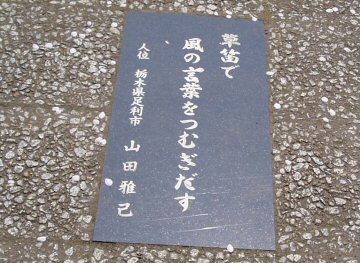 草笛で
風の言葉をつむぎだす
人位 栃木県足利市 山田雅己